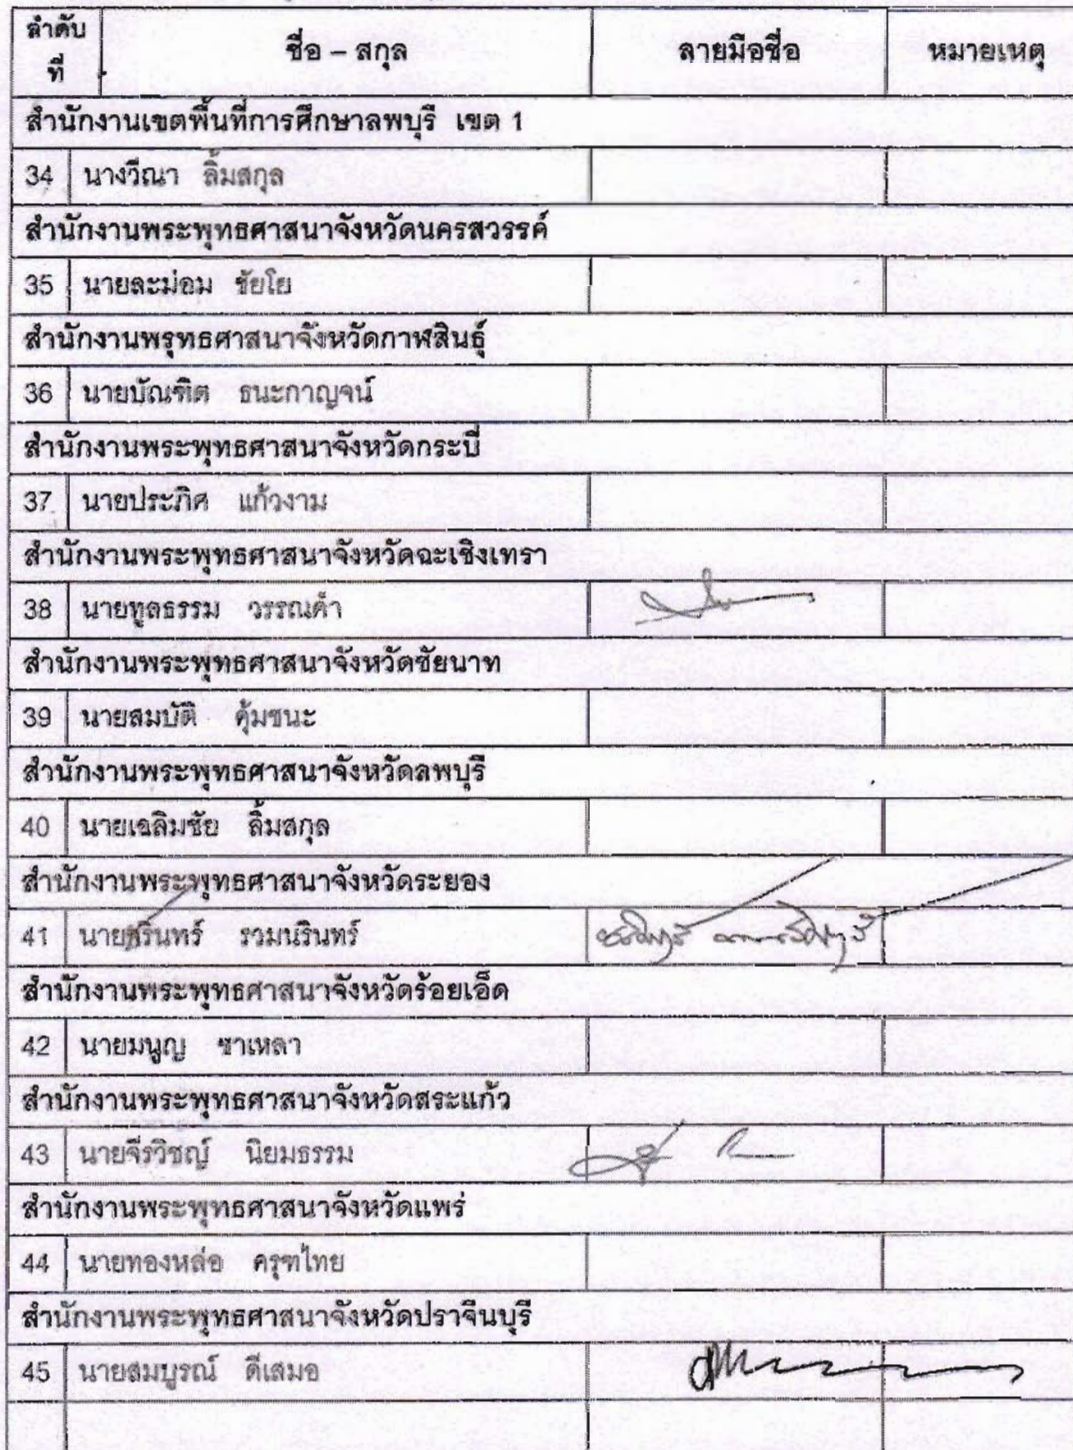 ลำดับที่ ชื่อ – สกุล ลายมือชื่อ หมายเหตุ
สำนักงานเขตพื้นที่การศึกษาลพบุรี เขต 1
34 นางวีณา ลิ้มสกุล
สำนักงานพระพุทธศาสนาจังหวัดนครสวรรค์
35 นายละม่อม ชัยโย
สำนักงานพรุทธศาสนาจังหวัดกาฬสินธุ์
36 นายบัณฑิต ธนะกาญจน์
สำนักงานพระพุทธศาสนาจังหวัดกระบี่
37 นายประภิศ แก้วงาม
สำนักงานพระพุทธศาสนาจังหวัดฉะเชิงเทรา
38 นายทูลธรรม วรรณคำ
สำนักงานพระพุทธศาสนาจังหวัดชัยนาท
39 นายสมบัติ คุ้มชนะ
สำนักงานพระพุทธศาสนาจังหวัดลพบุรี
40 นายเฉลิมชัย ลิ้มสกุล
สำนักงานพระพุทธศาสนาจังหวัดระยอง
41 รวมนรินทร์
สำนักงานพระพุทธศาสนาจังหวัดร้อยเอ็ด
42 นายมนูญ ชาเหลา
สำนักงานพระพุทธศาสนาจังหวัดสระแก้ว
43 นายจีรวิชญ์ นิยมธรรม
สำนักงานพระพุทธศาสนาจังหวัดแพร่
44 นายทองหล่อ ครุฑไทย
สำนักงานพระพุทธศาสนาจังหวัดปราจีนบุรี
45 นายสมบูรณ์ ดีเสมอ